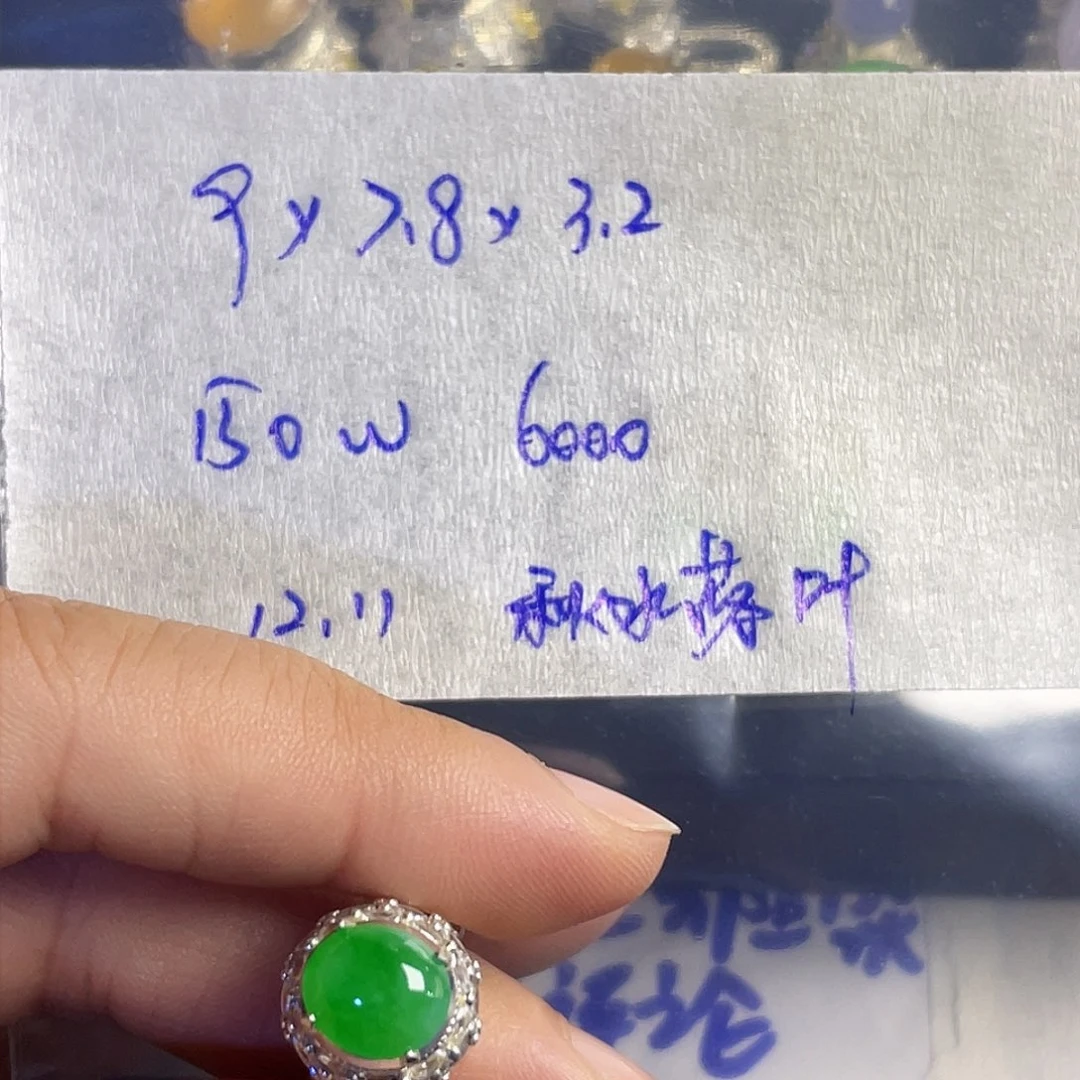 9x7.8x3.2
150W 6000
12.11 秋水落叶
论